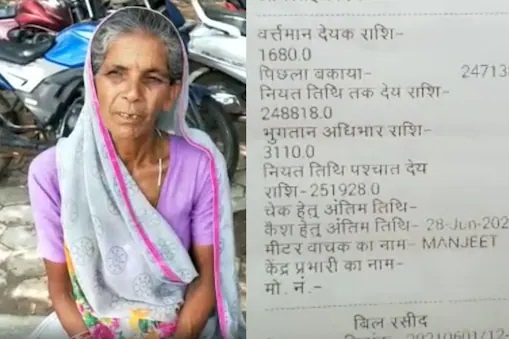 वर्त्तमान देयक राशि-
1680.0
पिछला बकाया- 24713
नियत तिथि तक देय राशि-
248818.0
भुगतान अधिभार राशि-
3110.0
नियत तिथि पश्चात देय
राशि-251928.0
चेक हेतू अंतिम तिथि-
कैश हेतू अंतिम तिथि- 28-Jun-202
मीटर वाचक का नाम- MANJEET
केंद्र प्रभारी का नाम-
मो. नं.-
बिल रसीद
20210601/12-